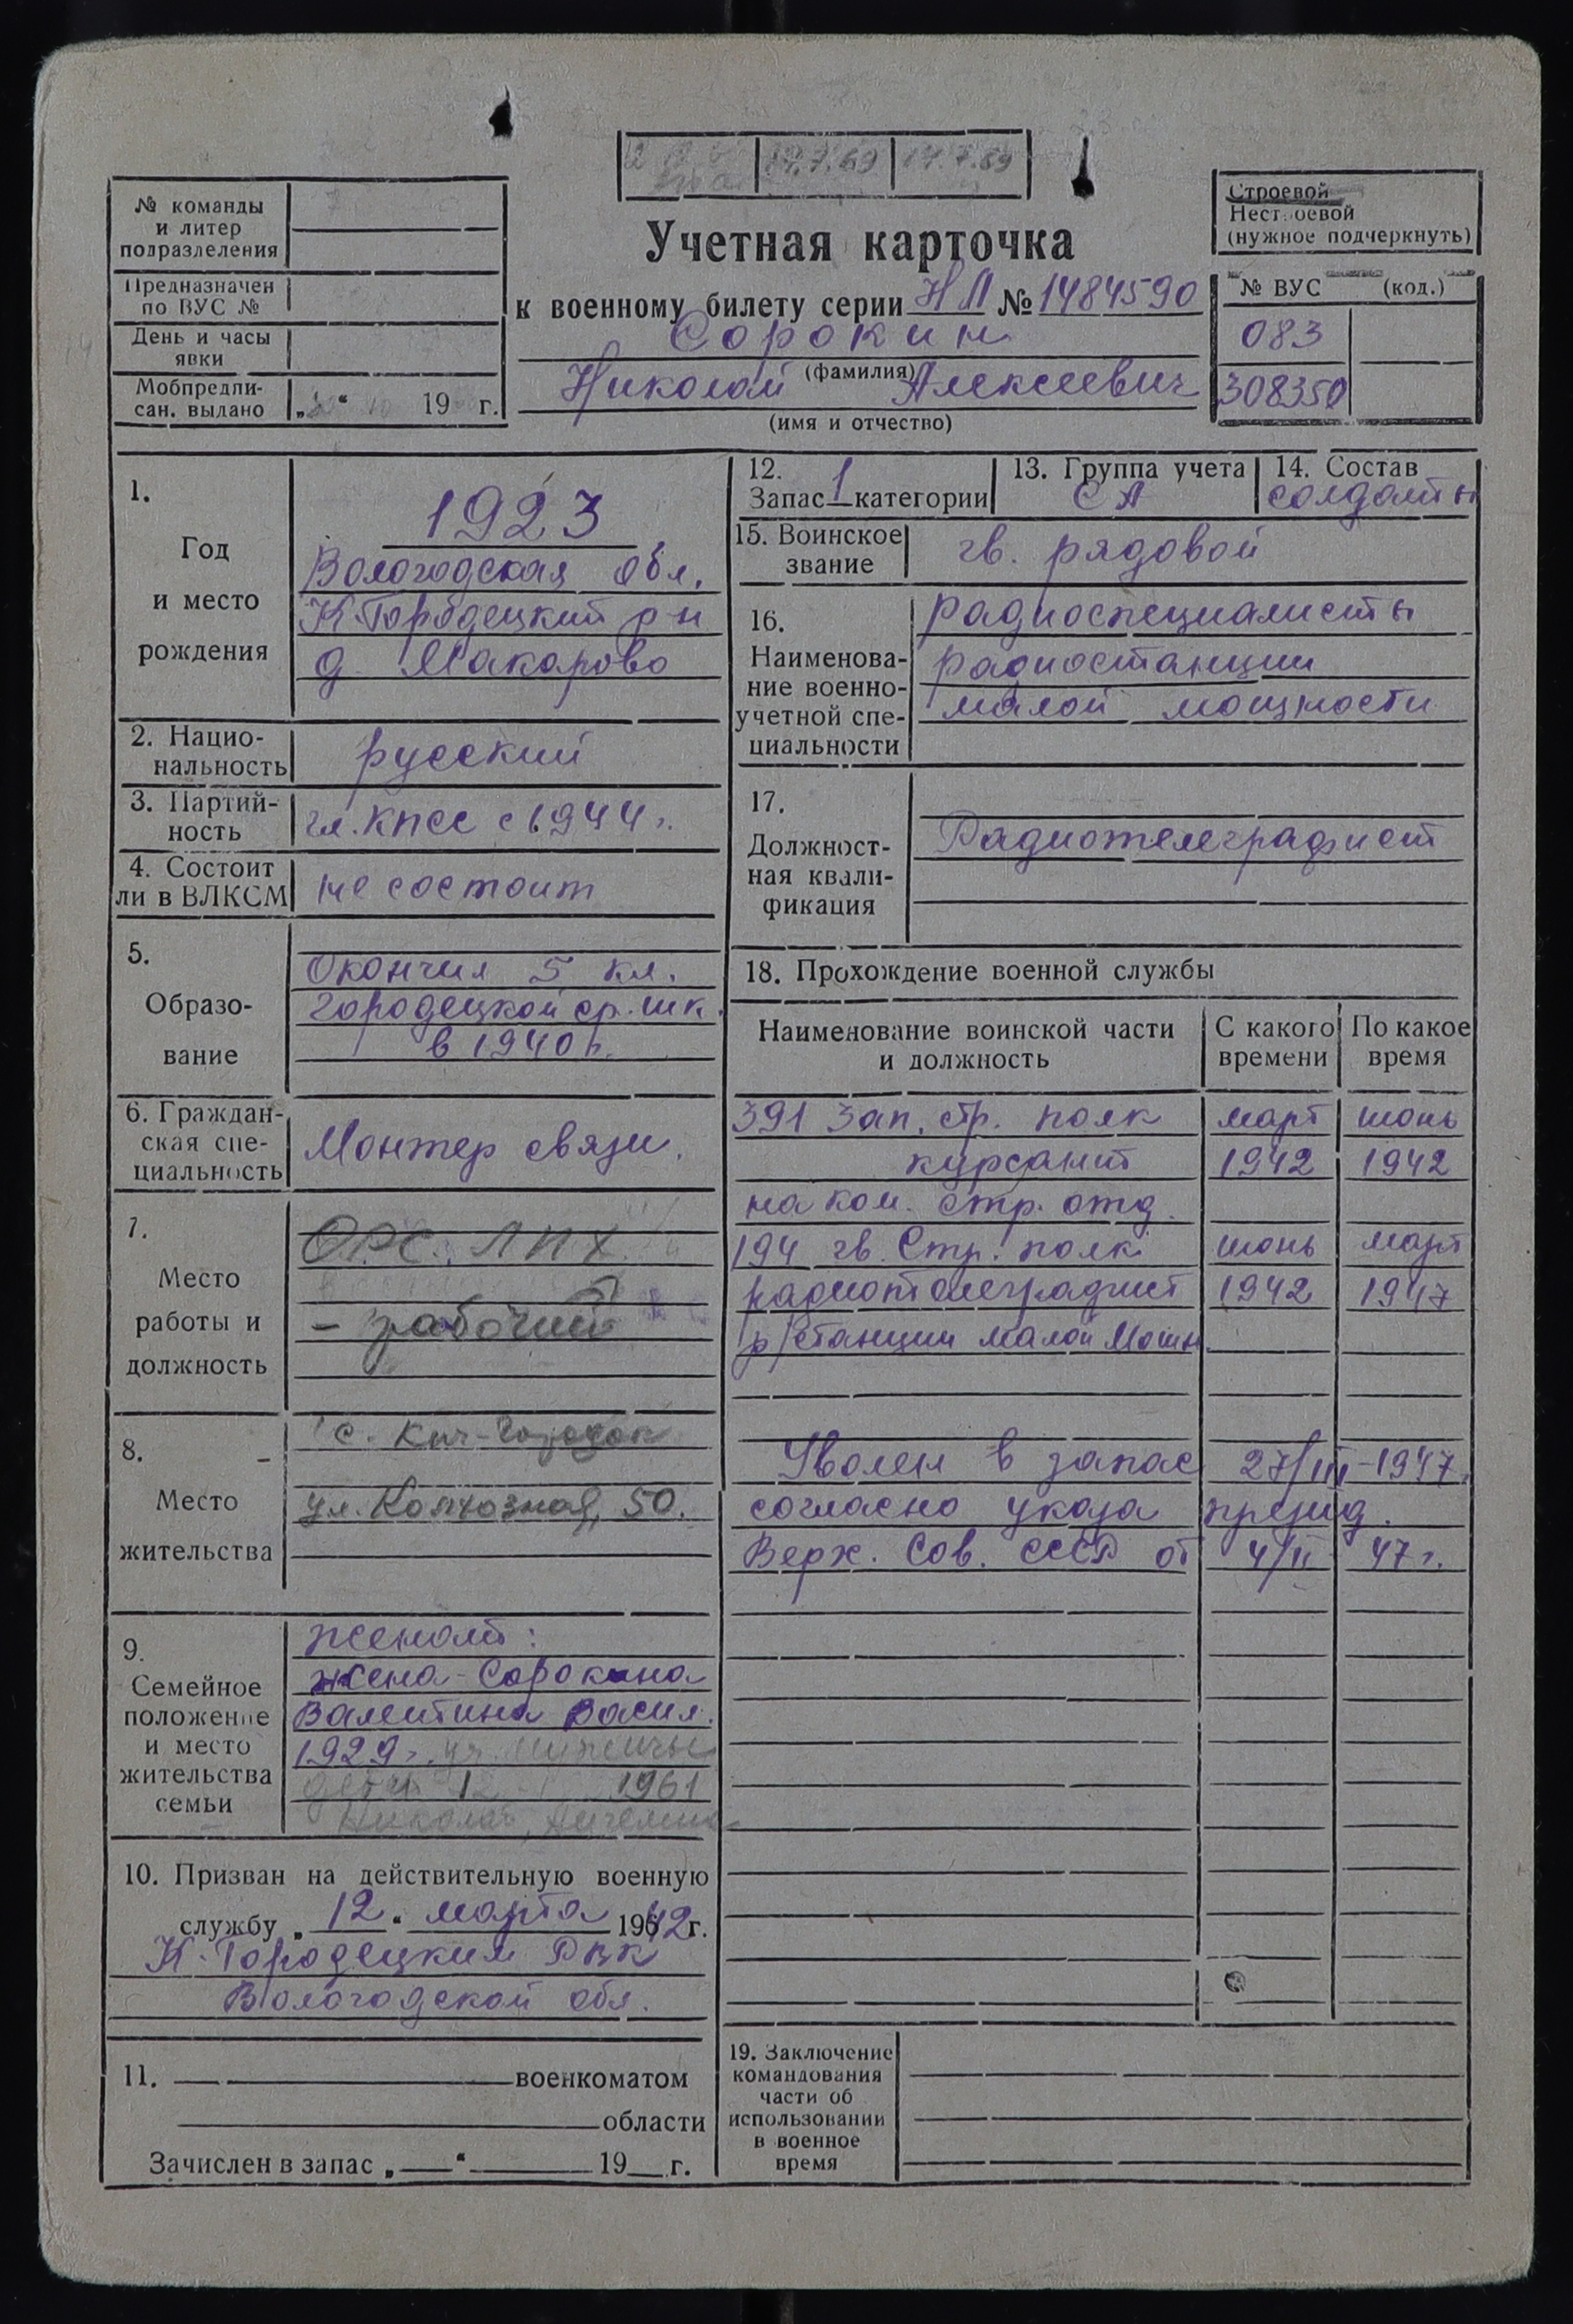 14.7.69 14.7.69
№ команды
и литер
подразделения
Предназначен
по ВУС №
День и часы
явки
Мобпредпи-
сан. выдано „ “ 19 г.
Учетная карточка
к военному билету серии НЛ № 1484590
Сорокин
(фамилия)
Николай Алексеевич
(имя и отчество)
Строевой
Нестроевой
(нужное подчеркнуть)
№ ВУС (код.)
083
308350
1.
Год
и место
рождения
1923
Вологодская обл.
К-Городецкий р-н
д Макарово
2. Нацио-
нальность
русский
3. Партий-
ность
чл. КПСС с 1944 г.
4. Состоит
ли в ВЛКСМ
не состоит
5.
Образо-
вание
Окончил 5 кл.
Городецкой ср. шк.
в 1940 г.
6. Граждан-
ская спе-
циальность
Монтер связи.
7.
Место
работы и
должность
ОРС. ЛПХ
- рабочий
8.
Место
жительства
с. Кич-Городок
ул. Колхозная, 50.
9.
Семейное
положение
и место
жительства
семьи
женат:
жена - Сорокина
Валентина Васил.
1929 г.
дети 1961
Николай,
10. Призван на действительную военную
службу „ 12 “ марта 19642 г.
К-Городецким РВК
Вологодской обл.
11. военкоматом
области
Зачислен в запас „ “ 19 г.
12.
Запас 1 категории
13. Группа учета
СА
14. Состав
солдаты
15. Воинское
звание
гв. рядовой
16.
Наименова-
ние военно-
учетной спе-
циальности
радиоспециалисты
радиостанции
малой мощности
17.
Должност-
ная квали-
фикация
Радиотелеграфист
18. Прохождение военной службы
Наименование воинской части
и должность
С какого
времени
По какое
время
391 Зап. стр. полк март июнь
курсант 1942 1942
на ком. стр. отд.
194 гв. Стр. полк июнь март
радиотелеграфист 1942 1947
р/станции малой мощн.
Уволен в запас 27/III-1947.
согласно указа презид.
Верх. Сов. СССР от 4/II 47 г.
19. Заключение
командования
части об
использовании
в военное
время